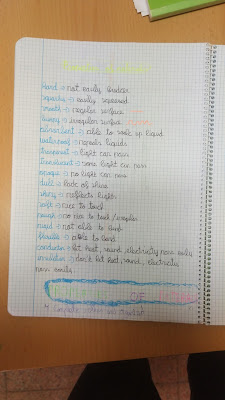 hard → not easily broken
squashy → easily squeezed
smooth → regular surface
bumpy → irregular surface
absorbent → able to soak up liquid
waterproof → repels liquids
transparent → light can pass
translucent → some light can pass
opaque → no light can pass
dull → lack of shine
shiny → reflects light
soft → nice to touch
rough → no nice to touch/
rigid → not able to bend
flexible → able to bend
conductor → let heat, sound, electricity pass easily
insulator → don't let heat, sound, electricity
pass easily
OF
4 Complete